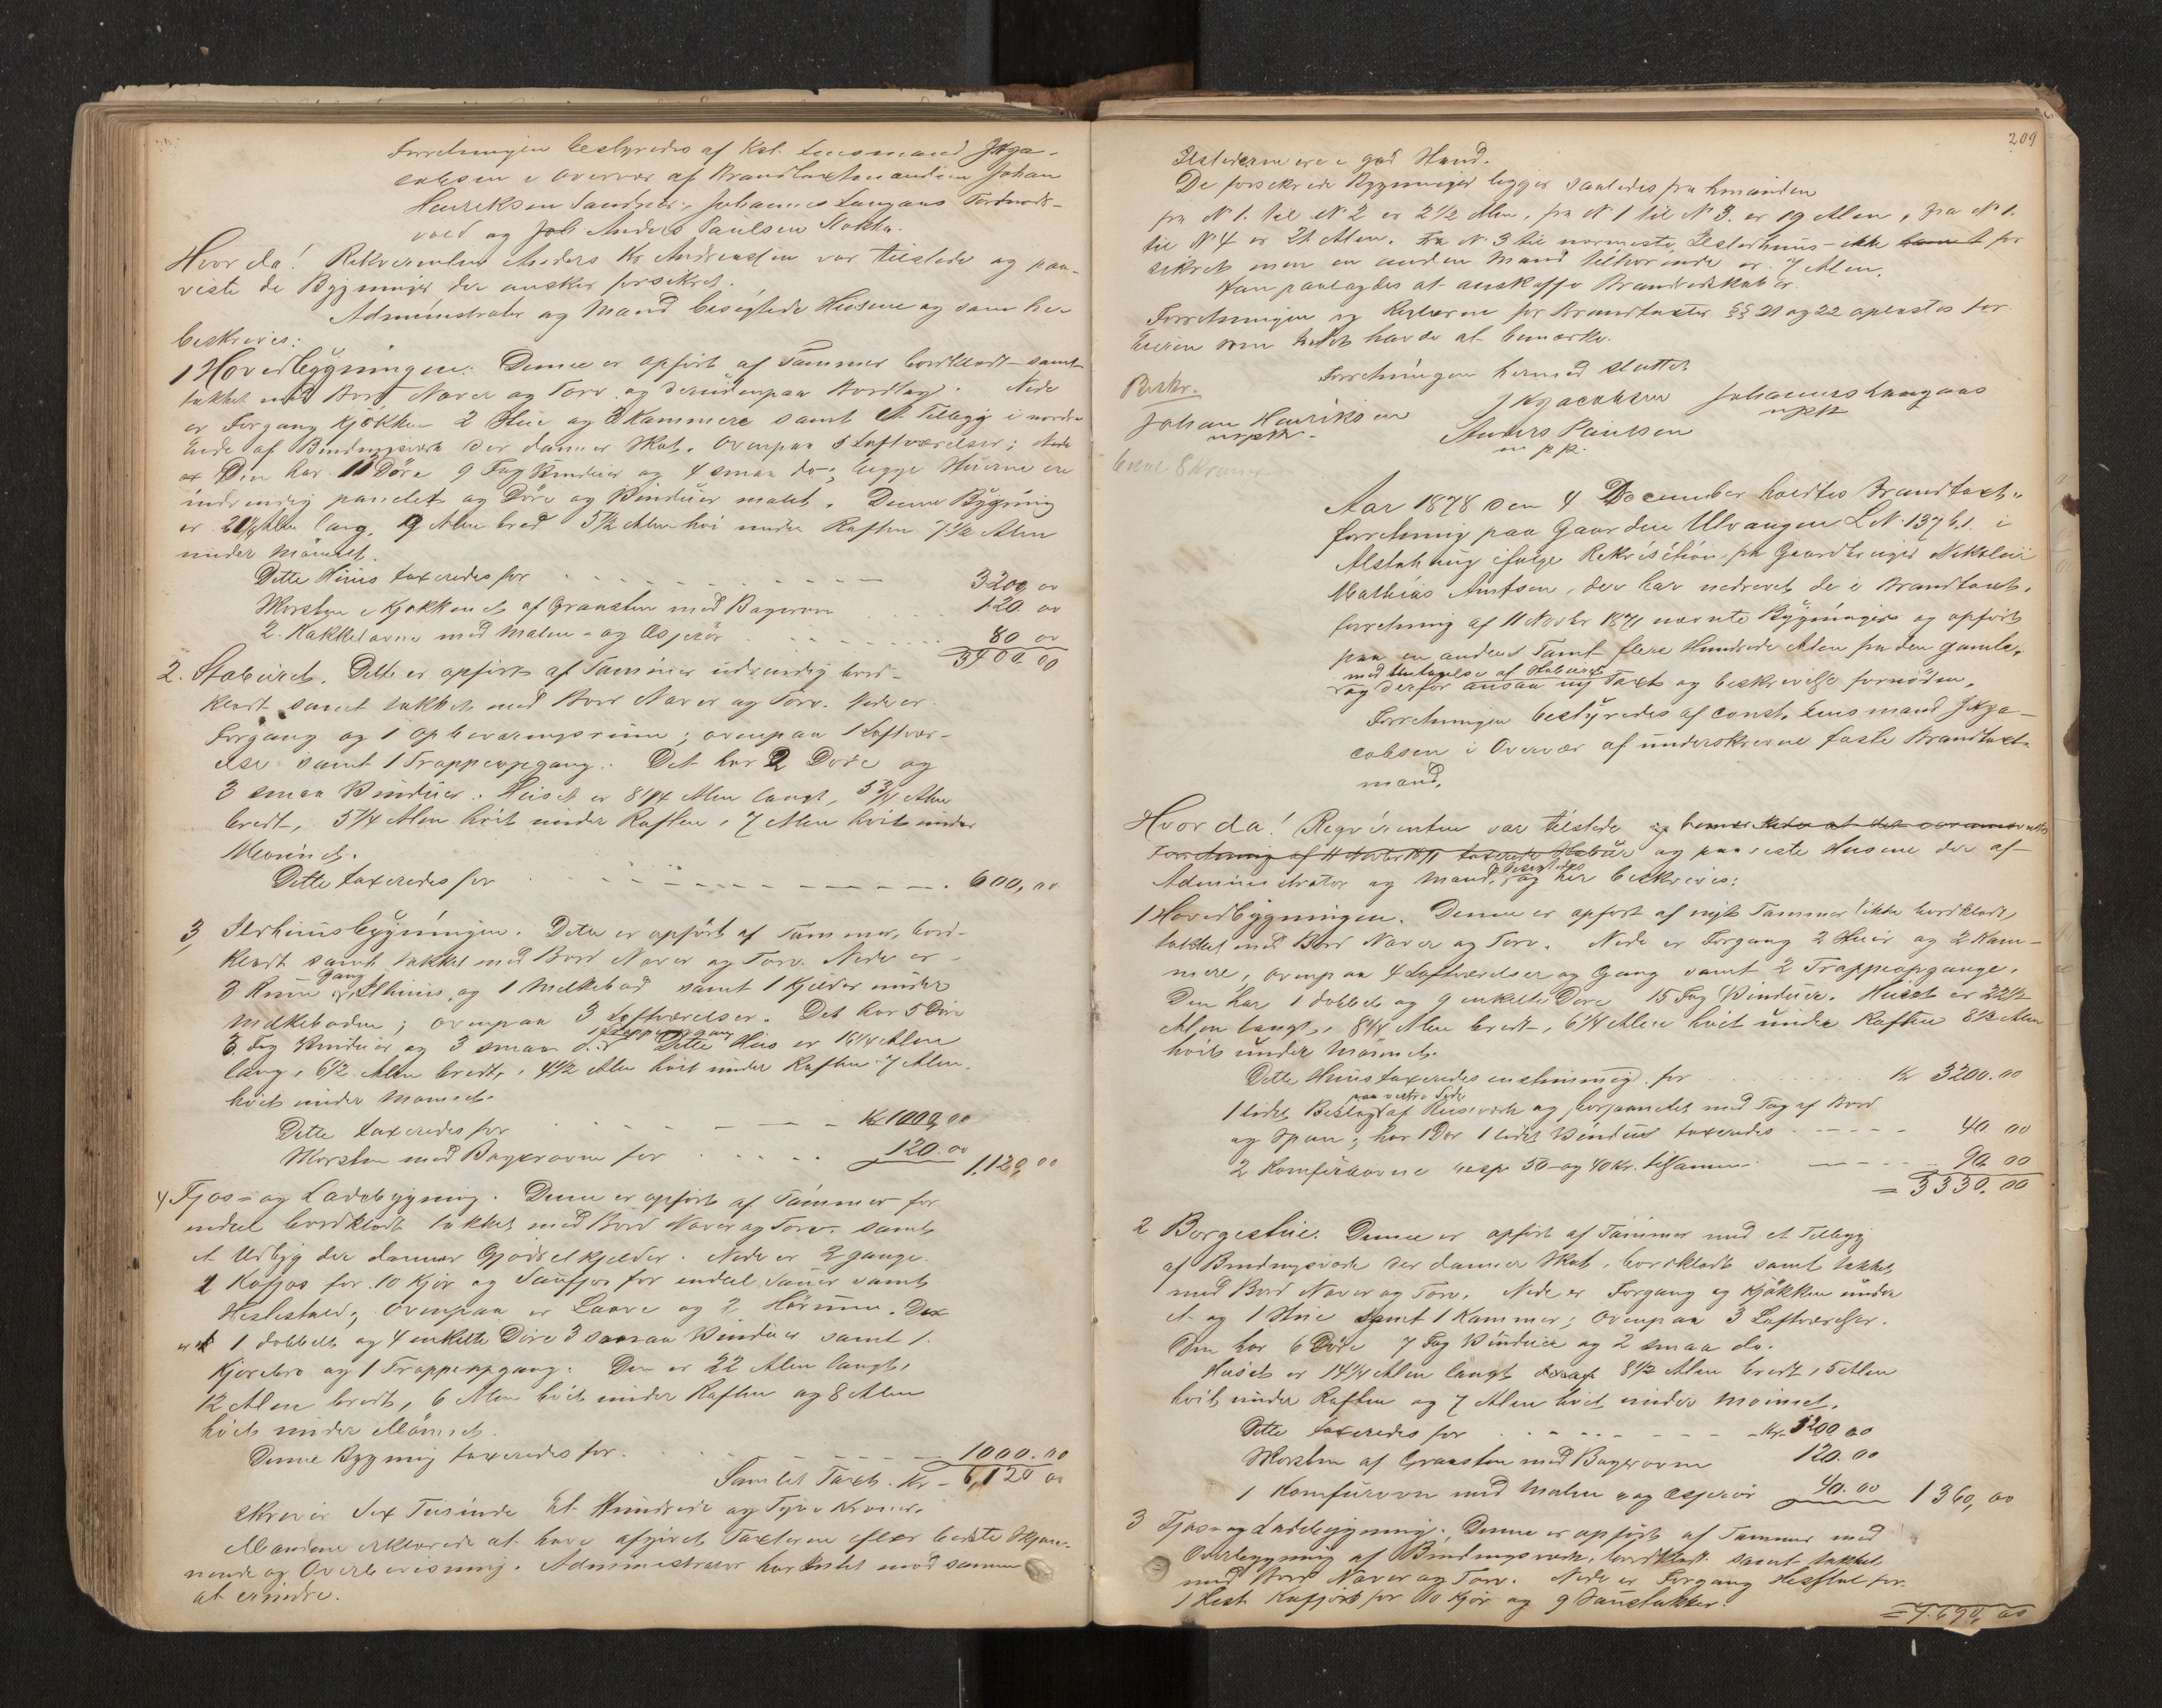 Forretningen bestyredes af Kst. Lensmand J Kja-
cobsen i Overvær af Brandtaxtmændene Johan
Henriksen Sandnes, Johannes Langaas
vold og Anders Paulsen Stokka.
Hvor da! Rekvirenten Anders Kr Andreassen var tilstede og paa-
viste de Bygninger der ønskes forsikret.
Administrator og Mænd besigtede Husene og som her
beskrives:
1 Hovedbygningen. Denne er opført af Tømmer bordklædt samt
tækket med Bord Næver og Torv og derudenpaa Bordtag. Nede
er Forgang Kjøkken 2 Stue og 3 Kammere samt et Tillegg i nordre
Ende af Bindingsværk der danner Skot. Ovenpaa 5 Loftværelser;
Den har 11 Døre 9 Fag Vinduer og 4 smaa do; begge Stuerne ere
indvendig panelet og Døre og Vinduer malet. Denne Bygning
er 21½ Alen lang, 9 Alen bred 5½ Alen høi under Raften 7½ Alen
under Mønnet.
Dette Huus taxeredes for 3200,00
Skorsten i Kjøkkenet af Graasten med Bagerovn 120 00
2 Kakkelovne med Malm- og Æsjerør 80 00
3400.00
2. Staburet. Dette er opført af Tømmer udvendig bord-
klædt samt tækket med Bord Næver og Torv. Nede er
Forgang og 1 Opbevaringsrum; ovenpaa 1 Loftvær-
else samt 1 Trappeopgang. Det har 2 Døre og
3 smaa Vinduer. Huset er 8¼ Alen langt, 5¾ Alen
bredt, 5¼ Alen høit under Raften, 7 Alen høit under
Mønnet.
Dette taxeredes for 600,00
3, Ildhuusbygningen. Dette er opført af Tømmer, bord-
klædt samt tækket med Bord Næver og Torv. Nede er
Gang
3 Rum og Ildhuus, og 1 Melkebod samt 1 Kjelder under
Melkeboden; ovenpaa 3 Loftværelser. Det har 5 Døre
1 Trappeopgang
3 Fag Vinduer og 3 smaa d. Dette Hus er 16¼ Alen
lang, 6½ Alen bredt, 4½ Alen høit under Raften 7 Alen
høit under Mønnet.
Dette taxeredes for Kr 1000,00
Skorsten med Bagerovn for 120.00 1,120 00
4 Fjøs- og Ladebygning. Denne er opført af Tømmer for
endeel bordklædt tækket med Bord Næver og Torv samt
et Udbyg der danner Gjødselkjelder. Nede er 2 gange
1 Kofjøs for 10 Kjør og Saufjøs for endeel Sauer samt
Hestestald; ovenpaa er Laave og 2 Hørum. Der
er 1 dobbelt og 4 enkelte Døre 3 smaa Vinduer samt 1
Kjørebro og 1 Trappeopgang. Den er 22 Alen langt,
12 Alen bredt, 6 Alen høit under Raften og 8 Alen
høit under Mønnet.
Denne Bygning taxeredes for 1000.00
Samlet Taxt. Kr 6,120 00
skriver Sex Tusinde Et Hundrede og Tyve Kroner.
Mændene erklærede at have afgivet Taxterne efter bedste Skjøn-
nende og Overbevisning. Administrator har Intet mod samme
at erindre.
209
Ildstederne ere i god Stand.
De forsikrede Bygninger ligger saaledes fra hinanden
fra No 1. til No 2 er 2½ Alen, fra No 1 til No 3. er 19 Alen, fra No 1.
til No 4 er 21 Alen. Fra No 3 til nærmeste Ildsterhuus - ikke for
sikret men en anden Mand tilhørende er 7 Alen.
Han paalagdes at anskaffe Brandredskaber.
Forretningen og Reglerne for Brandtaxter §§ 21 og 22 oplæstes for
Eieren som Intet havde at bemærke.
Forretningen hermed sluttet
Beskr.
JKJacobsen Johannes Langaas
mpp
Johan Henriksen
mpp.
Anders Paulsen
m p p.
Betalt 8 Kroner
Aar 1878 den 4 December holdtes Brandtaxt-
forretning paa Gaarden Ulvangen L.N. 137 b.1. i
Alstahaug ifølge Rekvisition fra Gaardbruger Nikolai
Mathias Arntsen, der har nedrevet de i Brandtaxt-
forretning af 11 Novbr 1871 nævnte Bygninger og opført
paa en anden Tomt flere Hundrede Alen fra den gamle,
med Undtagelse af Staburet
og derfor ansaa ny Taxt og beskrivelse fornøden.
Forretningen bestyredes af const. Lensmand J Kja-
cobsen i Overvær af underskrevne faste Brandtaxt-
mænd.
Hvor da! Reqvirenten var tilstede og bemærkede at det var
Forretning af 11 Novbr 1871 taxerede Stabur og paaviste Husene der af
besigtedes
Administrator og Mænd, og her beskrives:
1 Hovedbygningen. Denne er opført af nyt Tømmer (ikke bordklædt)
tækket med Bord Næver og Torv. Nede er Forgang 2 Stuer og 2 Kam-
mere, ovenpaa 4 Loftværelser og Gang samt 2 Trappeopgange.
Den har 1 dobbelt og 9 enkelte Døre 15 Fag Vinduer. Huset er 22½
Alen langt, 8¼ Alen bredt, 6¼ Alen høit under Raften 8½ Alen
høit under Mønnet.
Dette Huus taxeredes enstemmig for Kr 3200.00
paa vestre Side
1 lidet Beslag af Reisværk og bordpanelet med Tag af Bord
og Spon; har 1 Dør 1 lidet Vindue taxeredes 40 00
2 Komfurovne resp 50 og 40 Kr. tilsammen 90 00
= 3330.00
2 Borgestue. Denne er opført af Tømmer med et Tilbygg
af Bindingsværk der danner Skot, bordklædt samt tækket
med Bord Næver og Torv. Nede er Forgang og Kjøkken under
et og 1 Stue samt 1 Kammer; ovenpaa 3 Loftværelser.
Den har 6 Døre 7 Fag Vinduer og 2 smaa do.
Huset er 14¼ Alen langt 8½ Alen bredt, 5 Alen
høit under Raften og 7 Alen høit under Mønnet.
Dette taxeredes for Kr 1200 00
Skorsten af Graasten med Bagerovn 120.00
1 Komfurovn med Malm og Æsjerør 40.00 1360,00
3 Fjøs- og Ladebygning. Denne er opført af Tømmer med
Overbygning af Bindingsværk, bordklædt samt tækket
med Bord Næver og Torv. Nede er Forgang Hestestal for
1 Hest Kofjøs for 10 Kjør og 9 Saustakker.
= 4,690,00